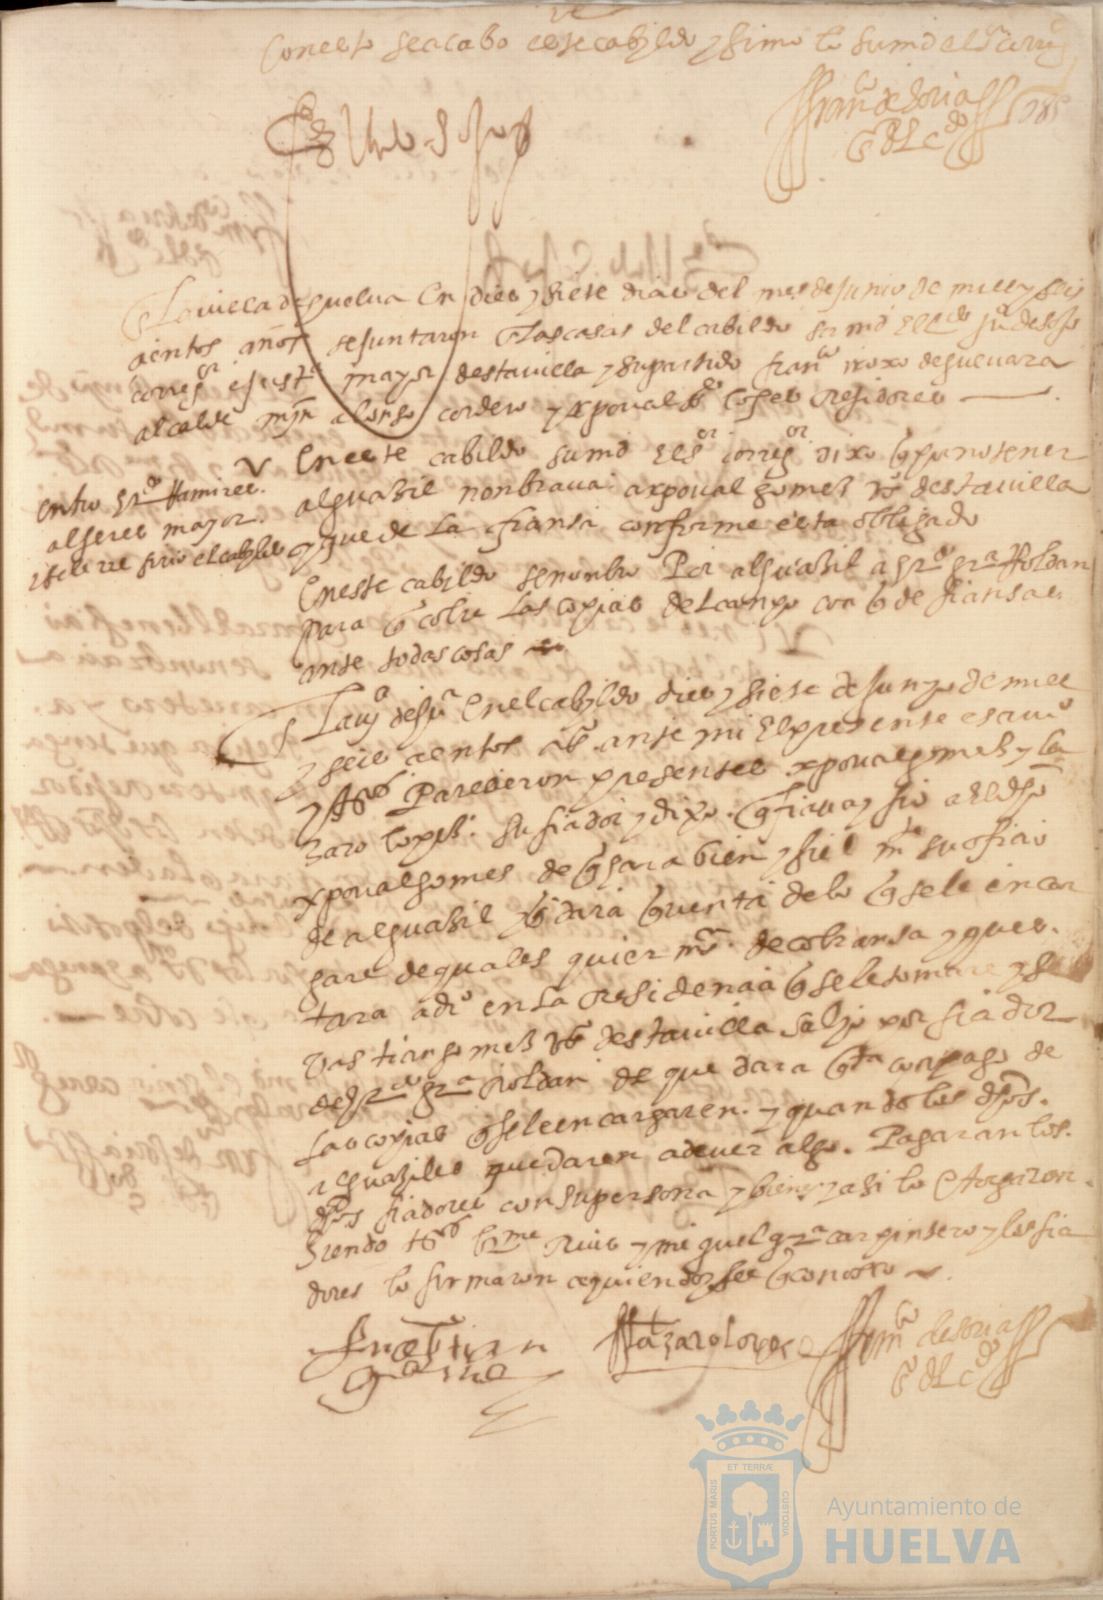 Con esto se acabo este cabyldo y firmo lo su md el sr correg
franco de soria
esno del cdo
185
En la villa de guelva En dies y siete dias del mes de junio de mill y seis
cientos años se juntaron En las casas del cabildo su md El lcdo
corregor e justa mayor desta villa y su partido franco roxo de guevara
alcalde myn alonso cordero y xpoual lopes Regidores
En este cabildo su md El sor corregor dixo q por no tener
alguasil nonbraua a xpoual gomes vo desta villa
y que de La fiansa conforme esta obligado
entro gro Ramires
alferes mayor
En este cabildo se nonbro Por alguasil a gro gra Roldan
para q cobre Las copias del canpo con q de fiansas
ante todas cosas
En el cabyldo dies y siete de junyo de mill
y seis cientos as ante mi El presente escriuo
y tgos Parecieron presentes xpoual gomes y la
zaro lopes su fiador y dixo q fiaua y fio a El dho
xpoual gomes de q hara bien y fiel mte su oficio
de alguasil y q dara quenta de lo q se le encar
gare de quales quier mrs de cobransa y que es
tara a dro en la Residencia q se le tomare y se
vas tian gomes vo desta villa salyo por fiador
de gro gra Roldan de que dara qta con pago de
Las copias q se le encargaren y quando los dhos
alguasiles quedaren a deuer algo Pagaran los
dhos fiadores con su persona y bienes y asi lo Otorgaron
siendo tgos brme Ruis y miguel gra carpintero y los fia
dores lo firmaron a quien doy fee q conosco
Sebastian
gomes
lazaro lopes
franco de soria
esno del cdo
PORTUS MARIS
ET TERRÆ
CUSTODIA
Ayuntamiento de
HUELVA